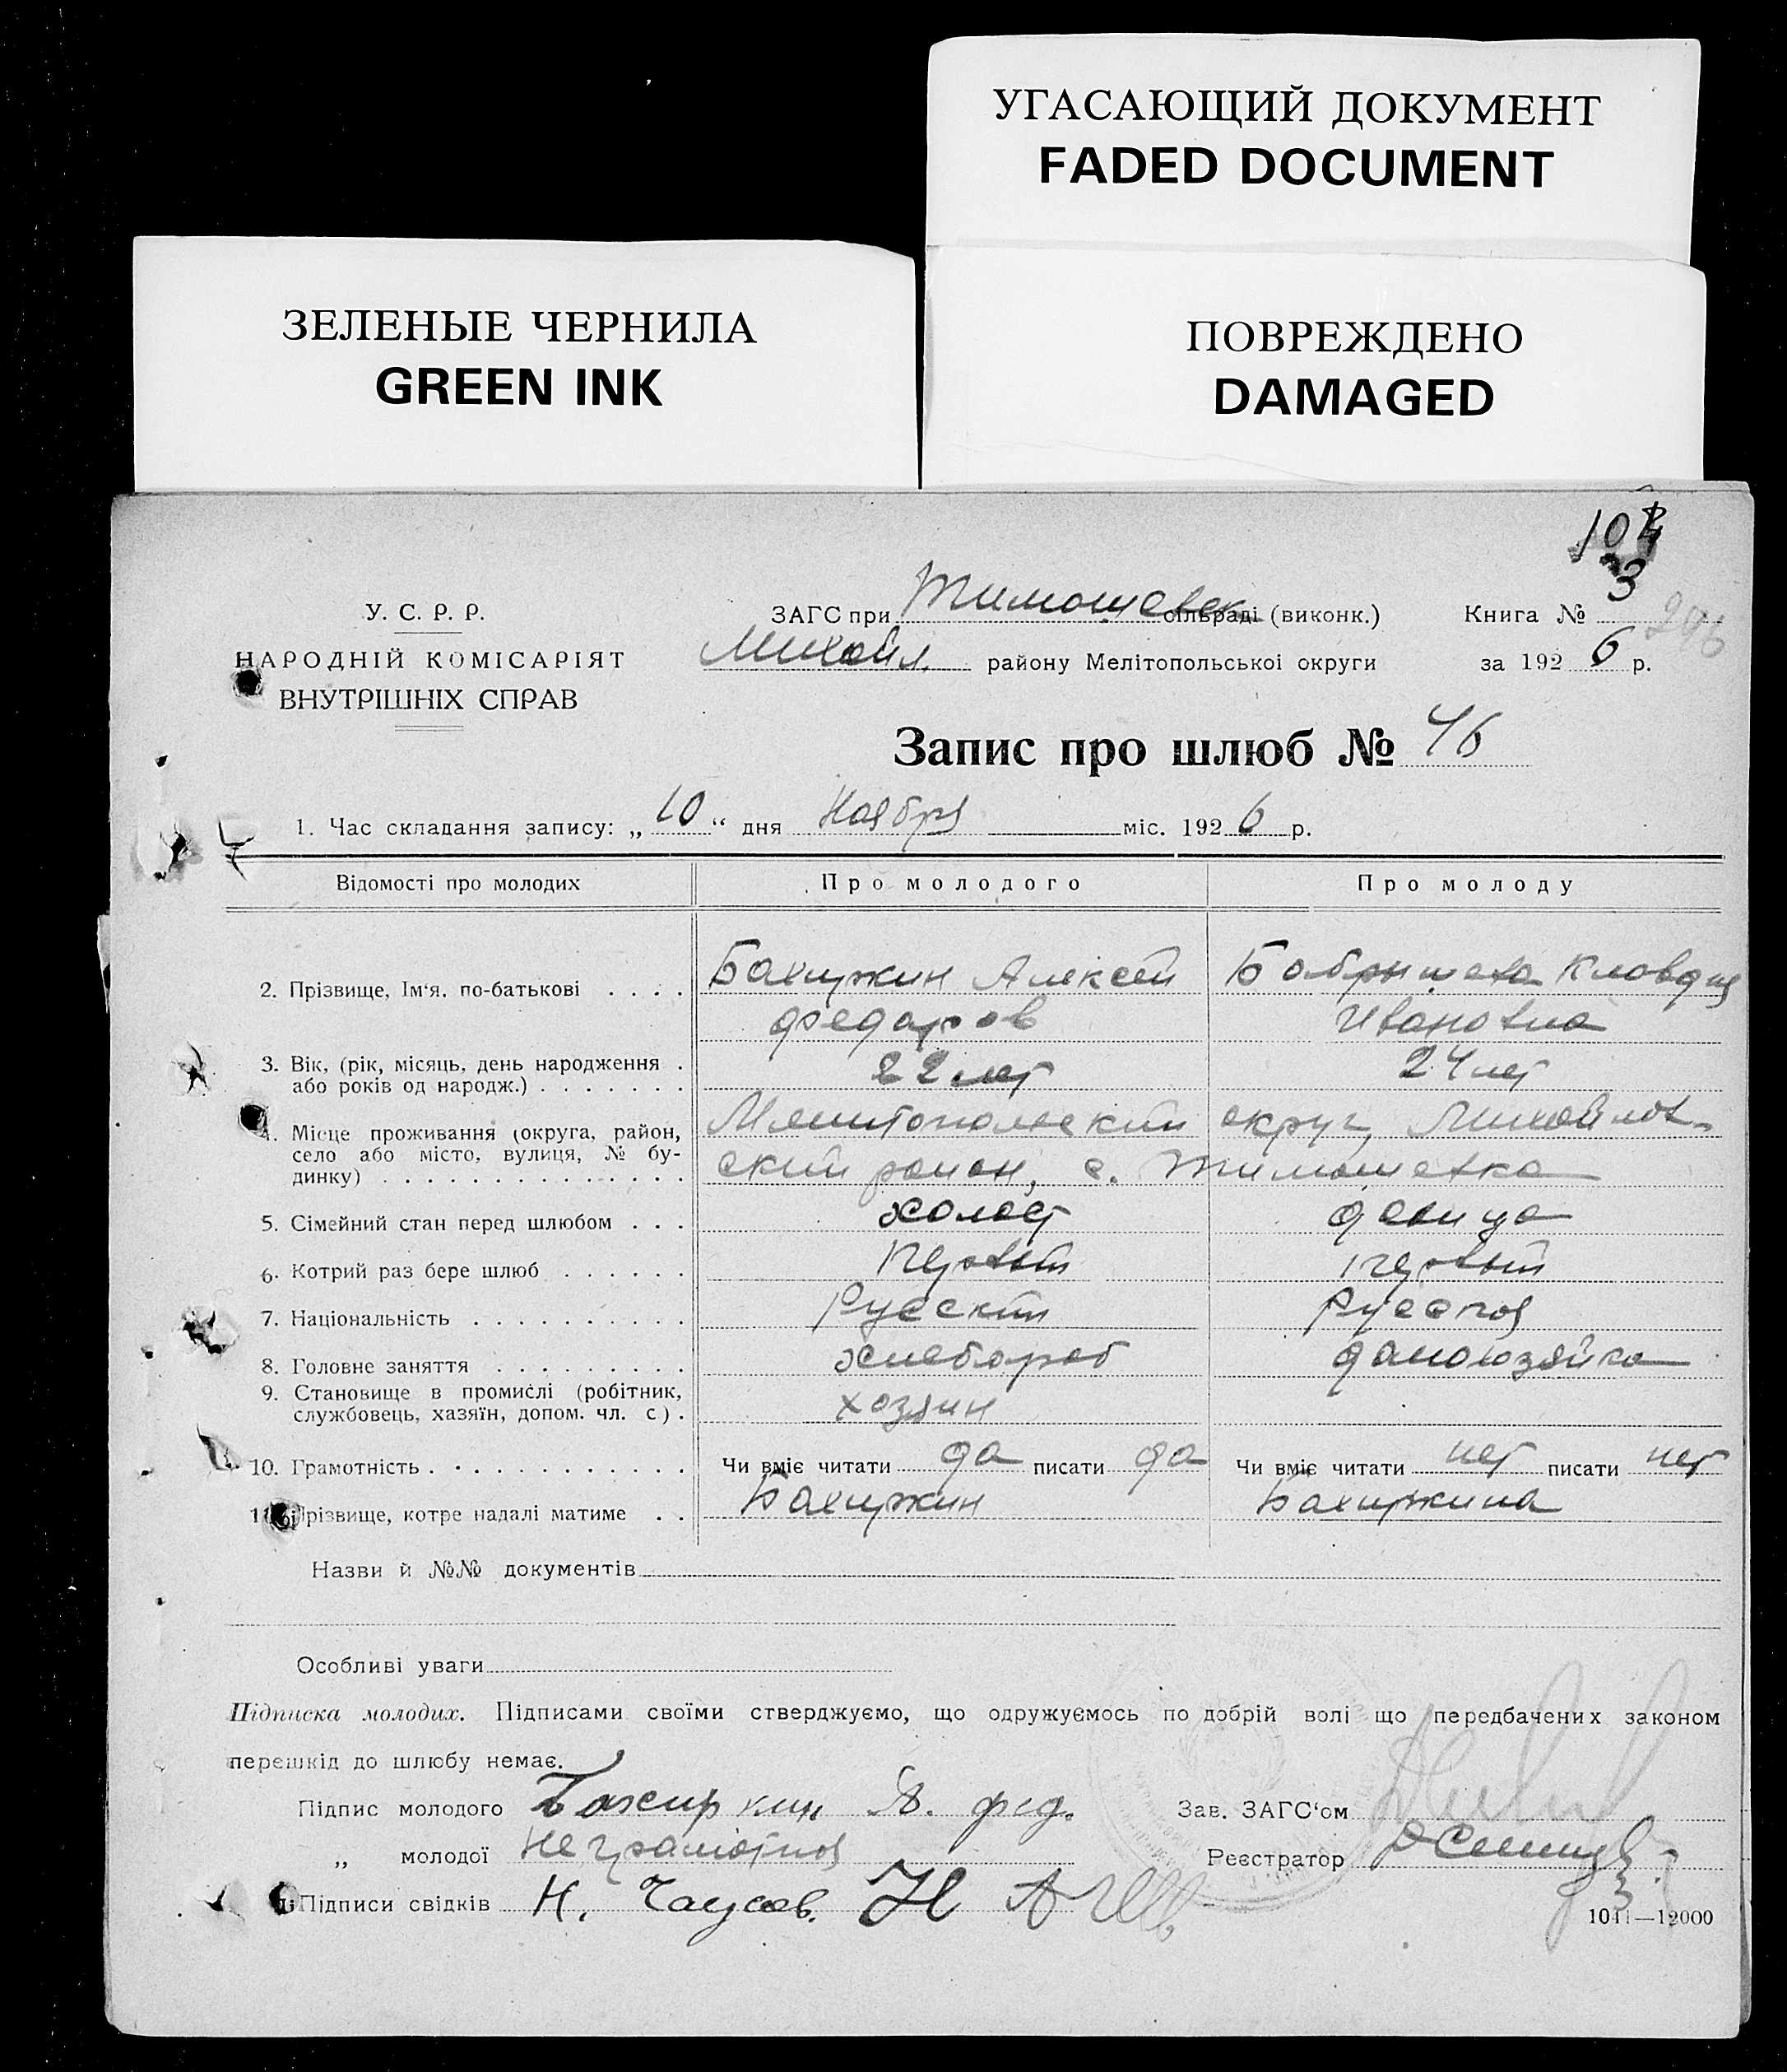 УГАСАЮЩИЙ ДОКУМЕНТ
FADED DOCUMENT
ЗЕЛЕНЫЕ ЧЕРНИЛА
GREEN INK
ПОВРЕЖДЕНО
DAMAGED
104
3
296
У. С. Р. Р.
НАРОДНІЙ КОМІСАРІЯТ
ВНУТРІШНІХ СПРАВ
ЗАГС при Тимошевск сільраді (виконк.)
Книга №
Михайл. району Мелітопольськоі округи
за 192 6 р.
Запис про шлюб № 46
1. Час складання запису: „ 10 “ дня Ноября міс. 192 6 р.
Відомості про молодих Про молодого Про молоду
2. Прізвище, Ім‘я. по-батькові . . . . Бахиркин Алексей Бобрышева Кловдия
федоров Ивановна
3. Вік, (рік, місяць, день народження .
або років од народж.) . . . . . . . 22 лет 24 лет
4. Місце проживання (округа, район, Мелитопольский округ, Михайлов-
село або місто, вулиця, № бу-
динку) . . . . . . . . . . . . . . ский район, с. Тимошевка
5. Сімейний стан перед шлюбом . . . холост девица
6. Котрий раз бере шлюб . . . . . . Первый первый
7. Національність . . . . . . . . . . Русский Русская
8. Головне заняття . . . . . . . . . хлебороб домохозяйка
9. Становище в промислі (робітник,
службовець, хазяїн, допом. чл. с) . хозяин
10. Грамотність . . . . . . . . . . . . Чи вміє читати да писати да Чи вміє читати нет писати нет
11. Прізвище, котре надалі матиме . . Бахиркин Бахиркина
Назви й №№ документів
Особливі уваги
Підписка молодих. Підписами своїми стверджуємо, що одружуємось по добрій волі що передбачених законом
перешкід до шлюбу немає.
Підпис молодого Бахиркин А. фед. Зав. ЗАГС‘ом
„ молодої Неграмотная Реєстратор
Підписи свідків Н. Чаусов.
1041—12000